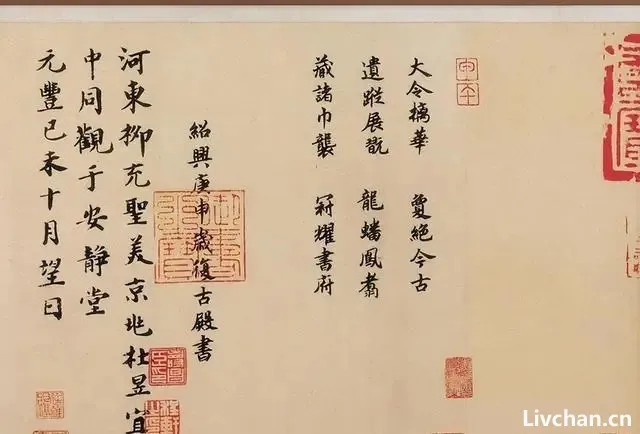 大令摛華　夐絕今古
遺蹤展翫　龍蟠鳳翥
藏諸巾襲　冠耀書府
紹興庚申歲復古殿書
河東柳充聖美京兆杜昱宜
中同觀于安靜堂
元豐己未十月望日
Livchan.cn